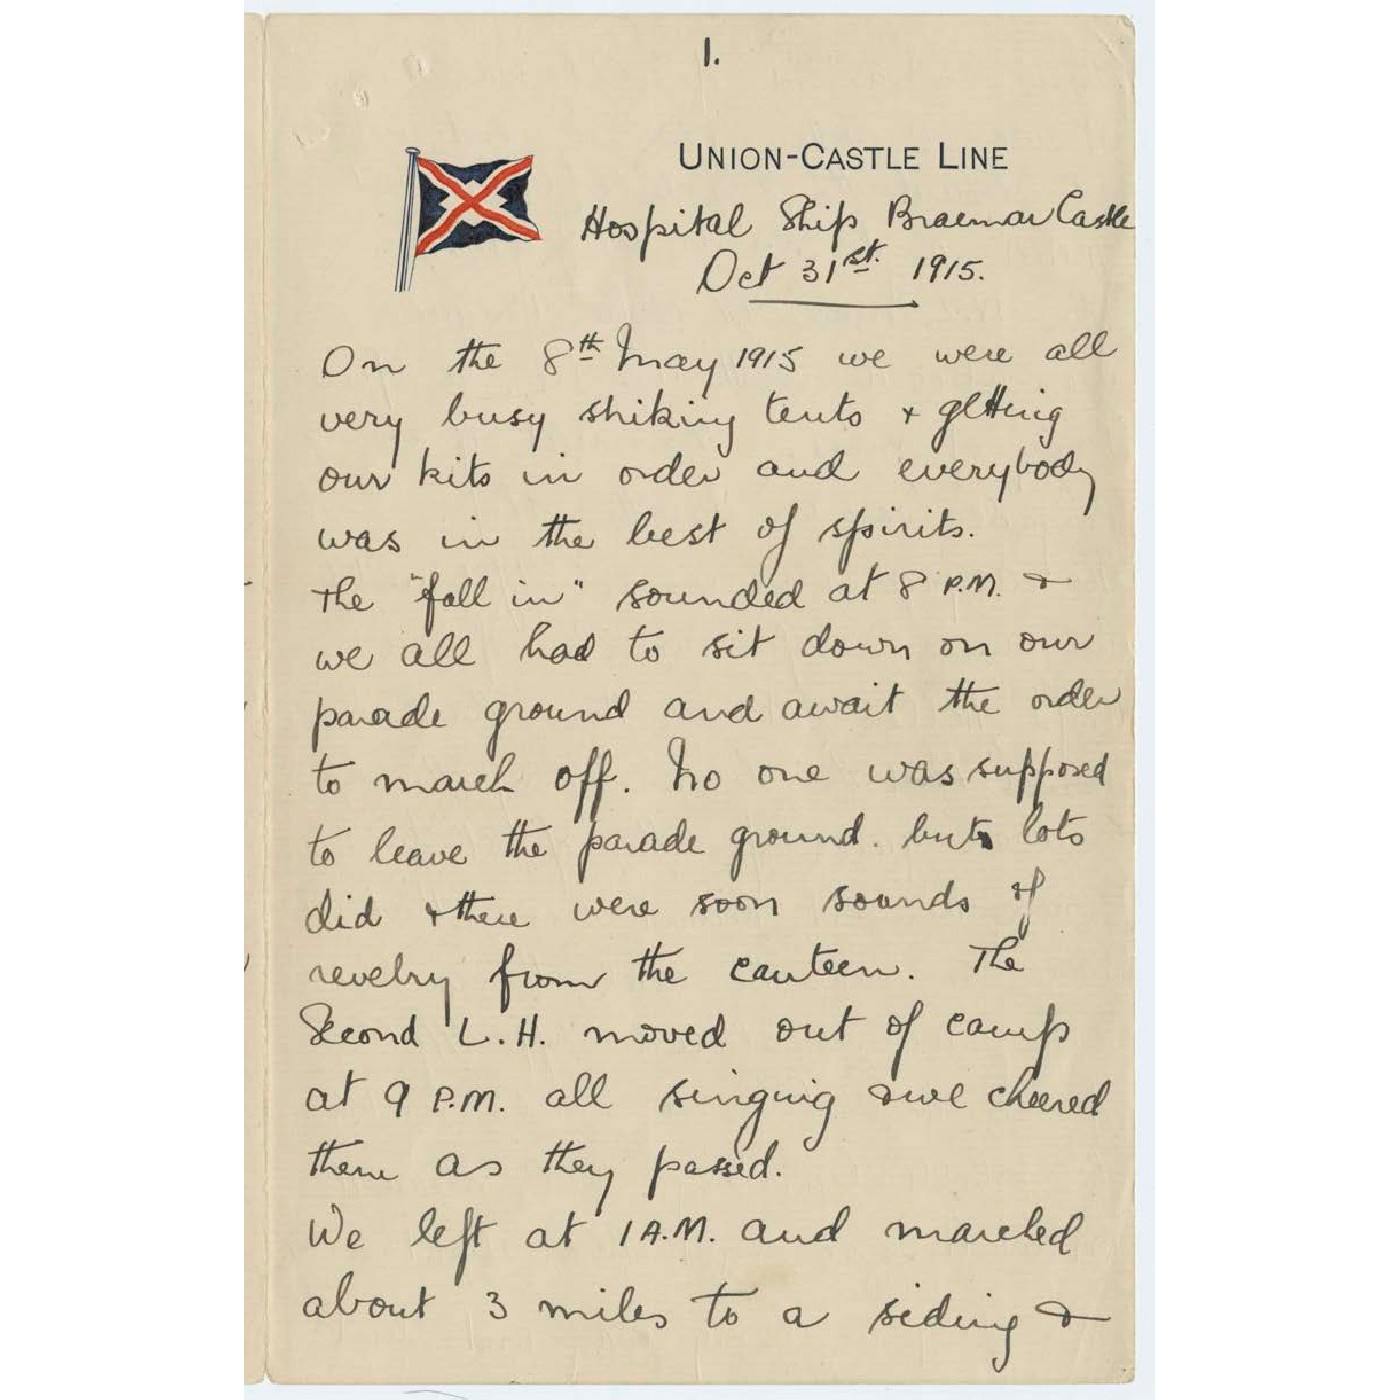 1.
UNION-CASTLE LINE
Hospital Ship Braemar Castle
Oct 31st. 1915.
On the 8th May 1915 we were all
very busy shiking tents & getting
our kits in order and everybody
was in the best of spirits.
The "fall in" sounded at 8 P.M. &
we all had to sit down on our
parade ground and await the order
to march off. No one was supposed
to leave the parade ground. but lots
did & there were soon sounds of
revelry from the canteen. The
Second L.H. moved out of camp
at 9 P.M. all singing & we cheered
them as they passed.
We left at 1 A.M. and marched
about 3 miles to a siding &